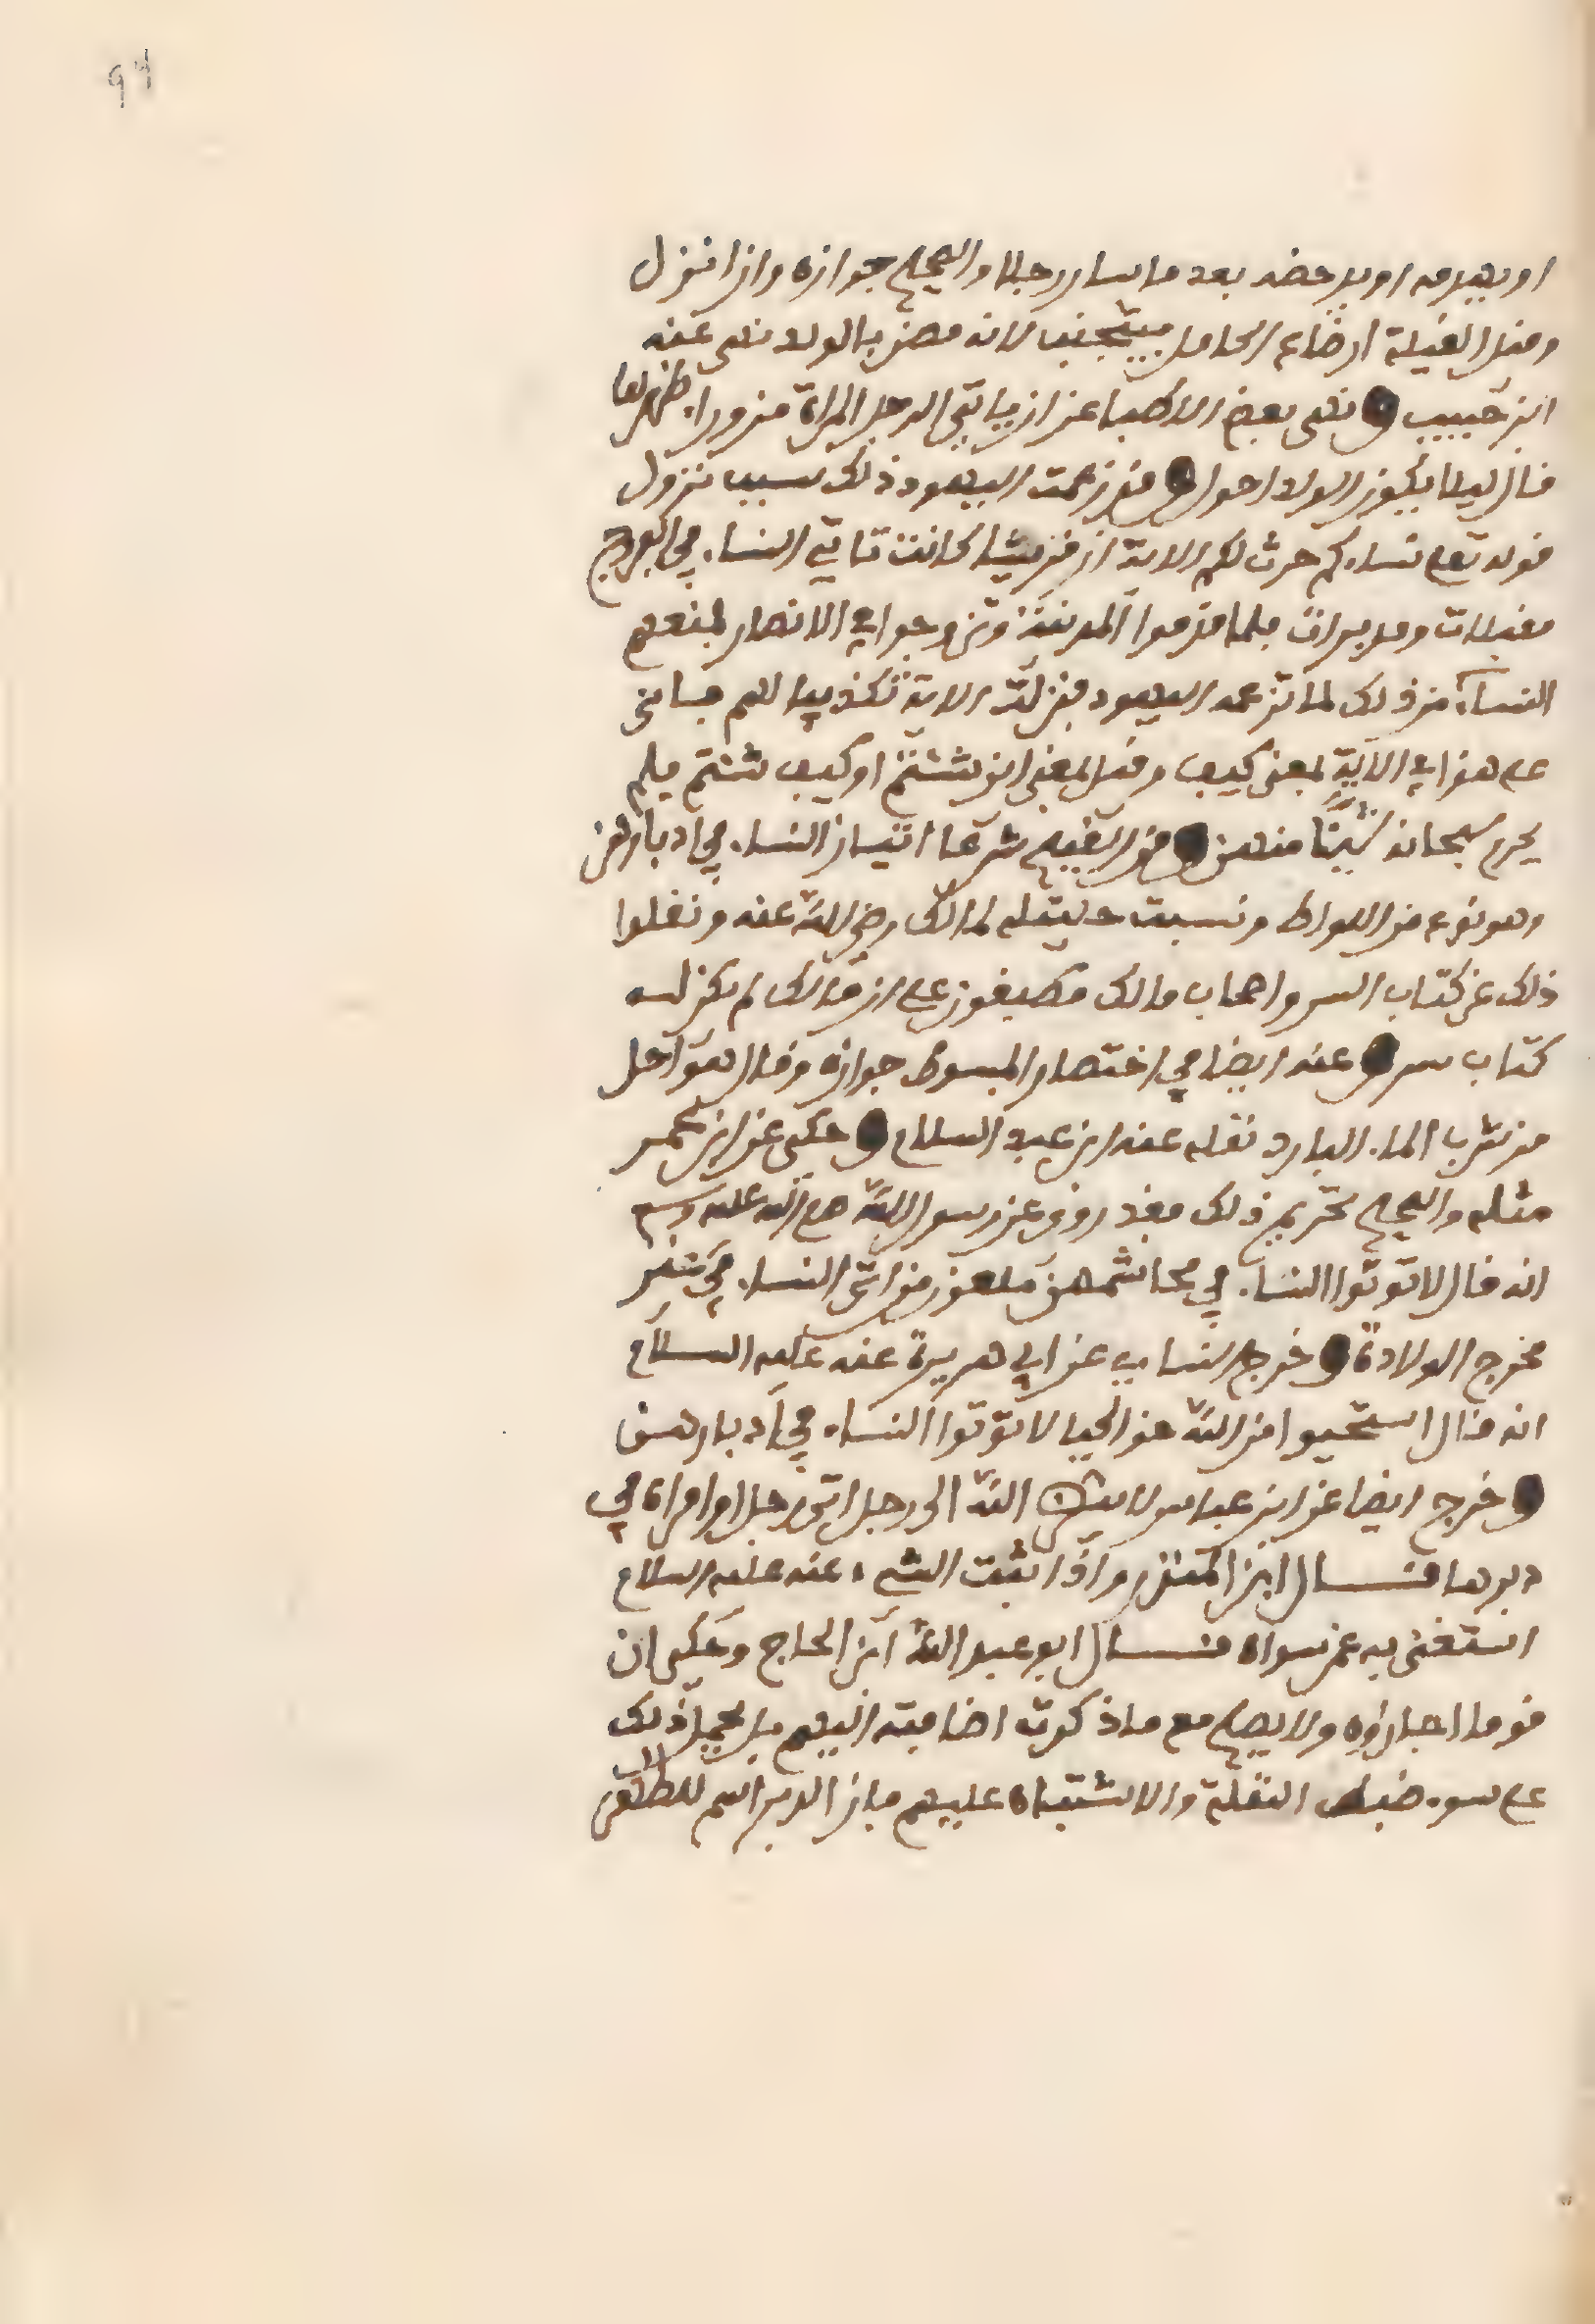 94
او يهدمه او يدحضه بعد ما سار رجلا والصحيح جوازه واذا نزل
وقيل الغيلة ارضاع الحامل فيتجنب لانه مضر بالولد نهى عنه
ابن حبيب ونهى بعض الاطبا عن ان ياتي الرجل المراة من ورا. ظهرها
قال ليلا يكون الولد احول وقد زعمت اليهود ذلك سبب نزول
قوله تعلى نساؤكم حرث لكم الاية ان قريشا كانت تاتي النسا. في الفروج
مقبلات ومدبرات فلما قدموا المدينة وتزوجوا في الانصار لمنعهم
النساء من ذلك لما تزعمه اليهود فنزلت الاية تكذيبا لهم فانى
على هذا في الاية بمعنى كيف وقيل المعنى اين شئتم او كيف شئتم فلم
يحرم سبحانه شيئا منهن ومن القبيح شرعا اتيان النسا. في ادبارهن
وهو نوع من اللواط ونسبت حليته لمالك رضي الله عنه ونقلوا
ذلك عن كتاب السر واصحاب مالك مطبقون على ان مالك لم يكن له
كتاب سر وعنه ايضا في اختصار المبسوط جوازه وقال هو احل
من شرب الما. البارد نقله عنه ابن عبد السلام وحكي عن ابن عمر
مثله والصحيح تحريم ذلك فقد روي عن رسول الله صلى الله عليه وسلم
انه قال لا توتوا النسا. في محاشهن ملعون من اتى النسا. في غير
مخرج الولادة وخرج النساي عن ابي هريرة عنه عليه السلام
انه قال استحيوا من الله حق الحيا لا توتوا النساء في ادبارهن
وخرج ايضا عن ابن عباس لا ينظر الله الى رجل اتى رجلا او امراة في
دبرها قال ابن المنذر واذا ثبت الشيء عنه عليه السلام
استغنى به عن سواه قال ابو عبد الله ابن الحاج وحكي ان
قوما اجازوه ولا يصح مع ما ذكرت اضافته اليهم بل يحمل ذلك
على سو. ضبط النقلة والاشتباه عليهم فان الدبر اسم للظهر